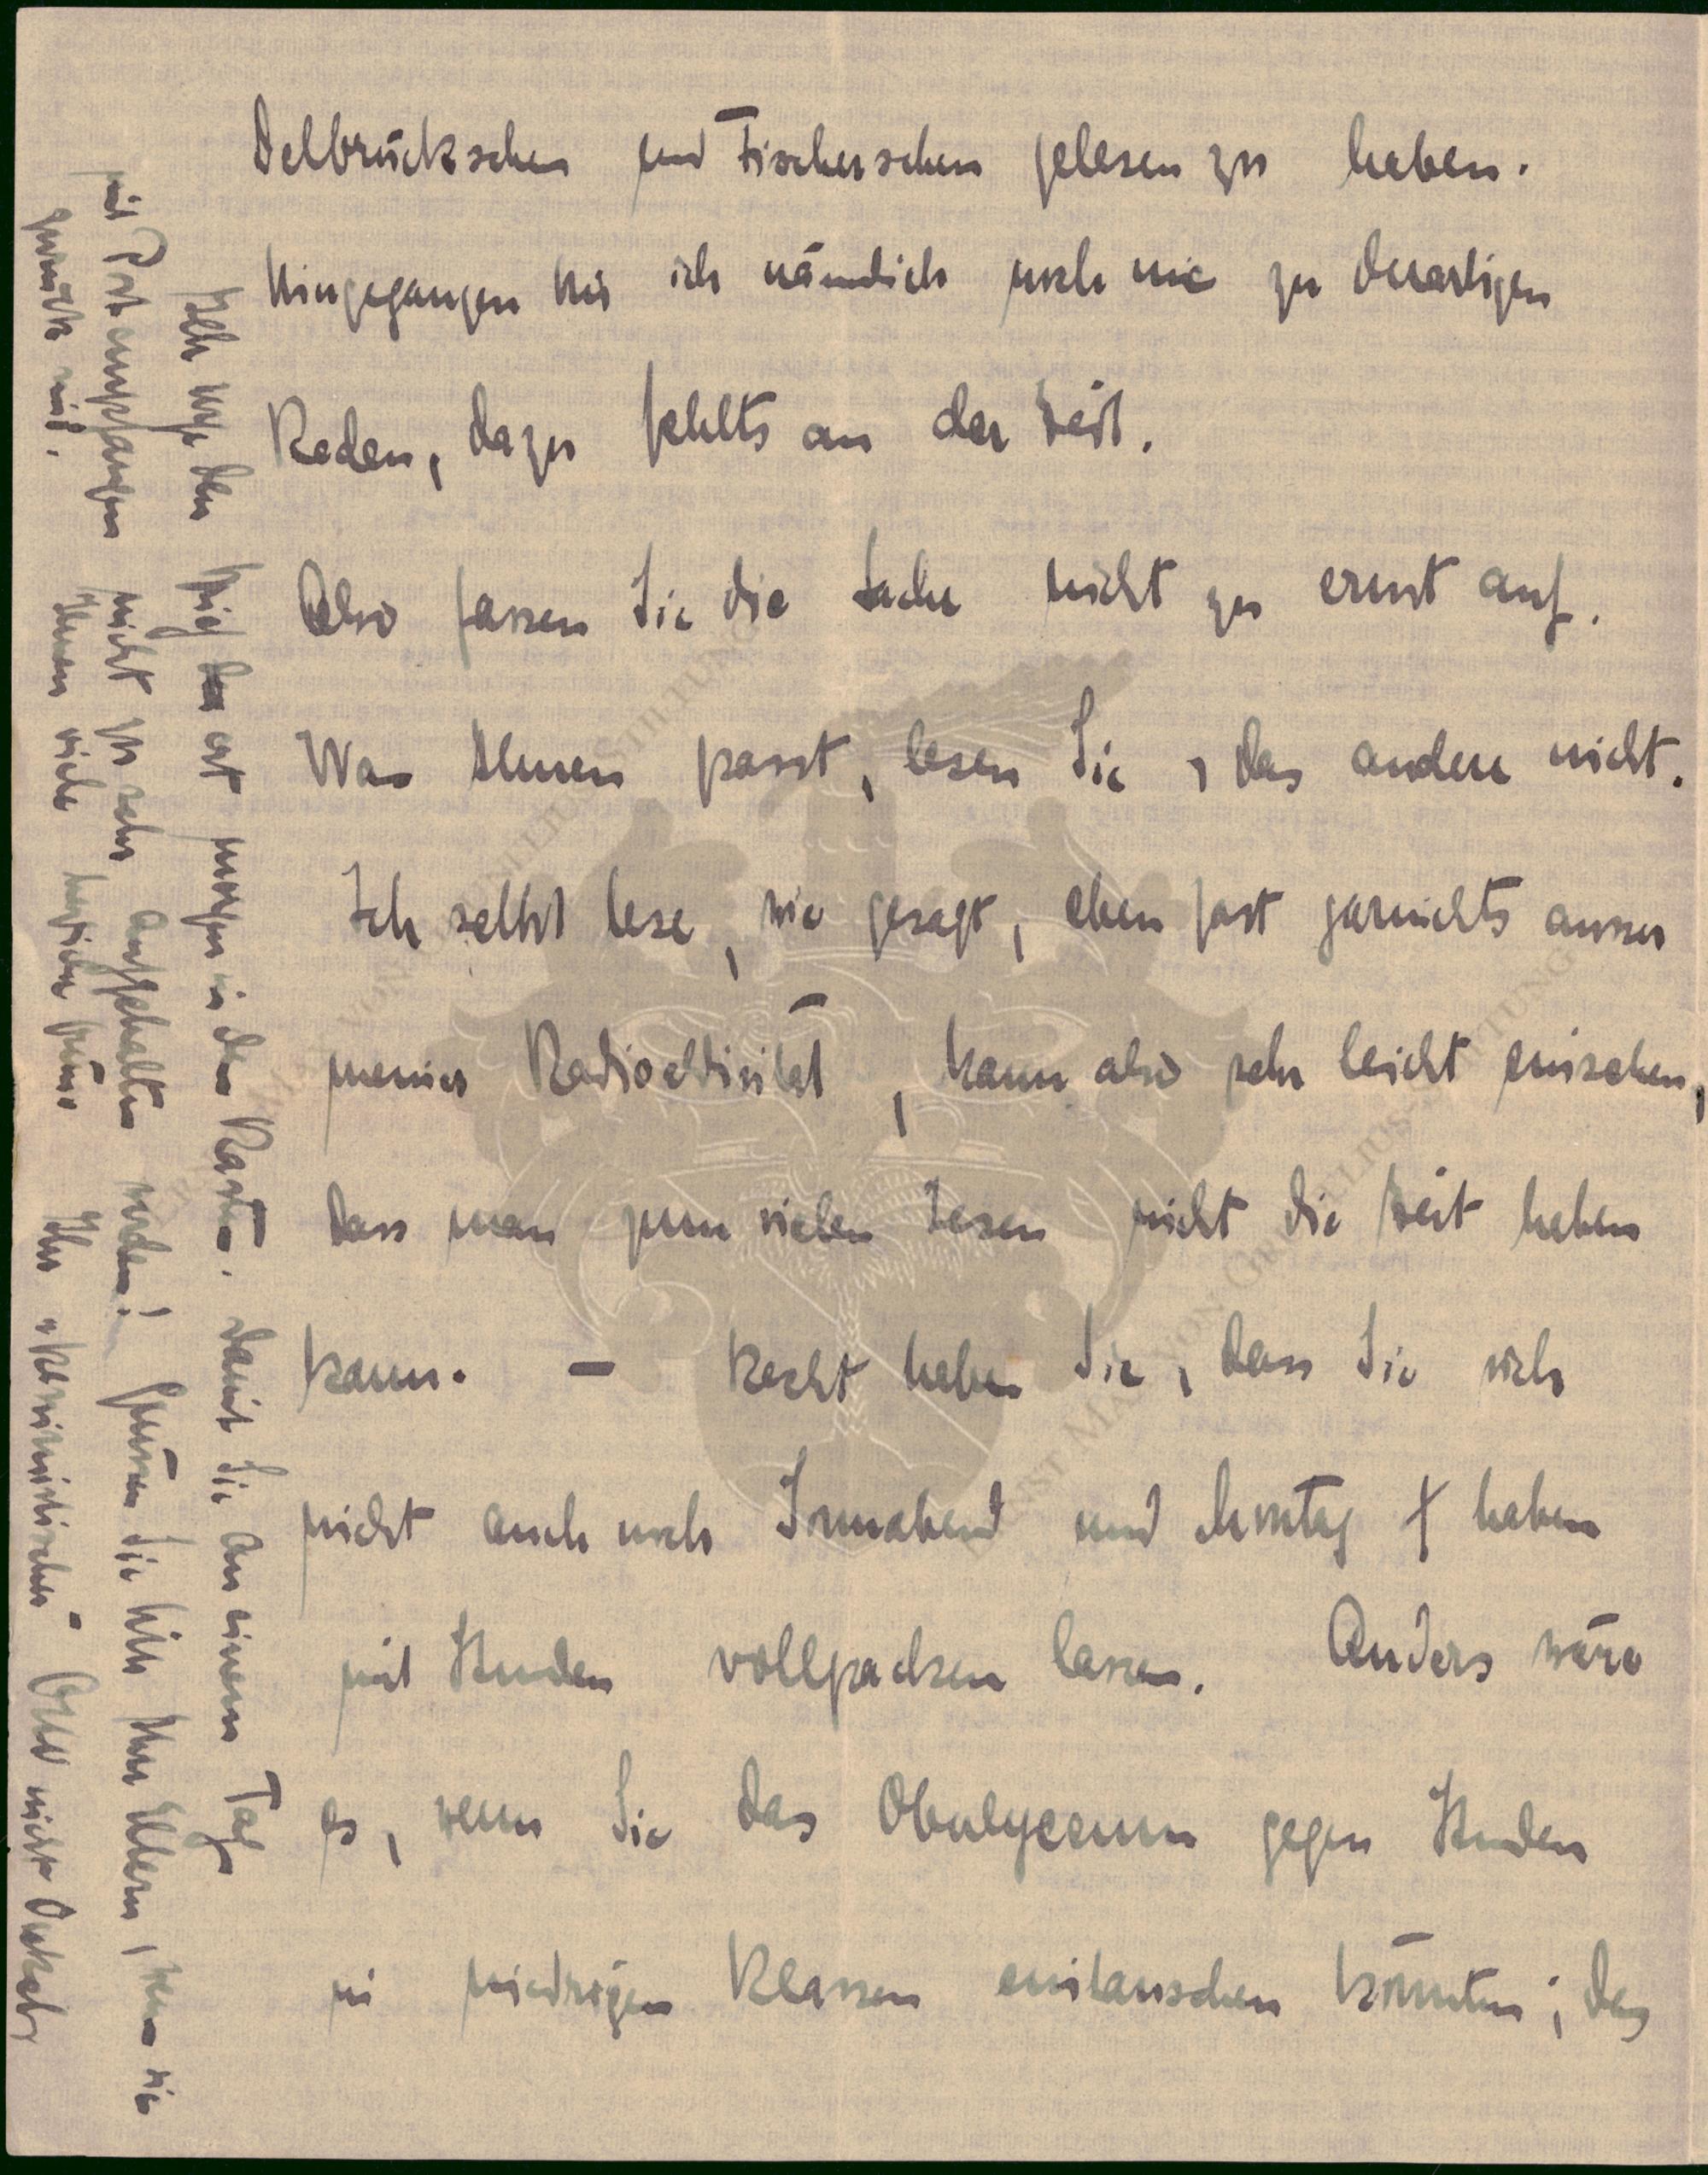 Delbrückschen und Fischerschen gelesen zu haben.
Hingegangen bin ich nämlich noch nie zu derartigen
Reden, dazu fehlts an der Zeit.
Also fassen Sie die Sache nicht zu ernst auf.
Was Ihnen passt, lesen Sie, das andere nicht.
Ich selbst lese, wie gesagt, eben fast garnichts ausser
meiner Radioaktivität, kann also sehr leicht einsehen,
dass man zum vielen Lesen nicht die Zeit haben
kann. – Recht haben Sie, dass Sie sich
nicht auch noch Sonnabend und Montag haben
mit Stunden vollpacken lassen. Anders wäre
es, wenn Sie das Oberlyceum gegen Stunden
in niedrigen Klassen eintauschen könnten; das
Ich lege den Brief erst morgen in den Kasten. damit Sie an einem Tage
mit Post empfangen nicht zu sehr aufgehalten werden! Grüssen Sie bitte Ihre Eltern, wenn sie
zurück sind. Ihnen viele herzliche Grüsse Ihr „pessimistischer" Otto nicht
DR. ERNST MARION CORNELIUS-STIFTUNG